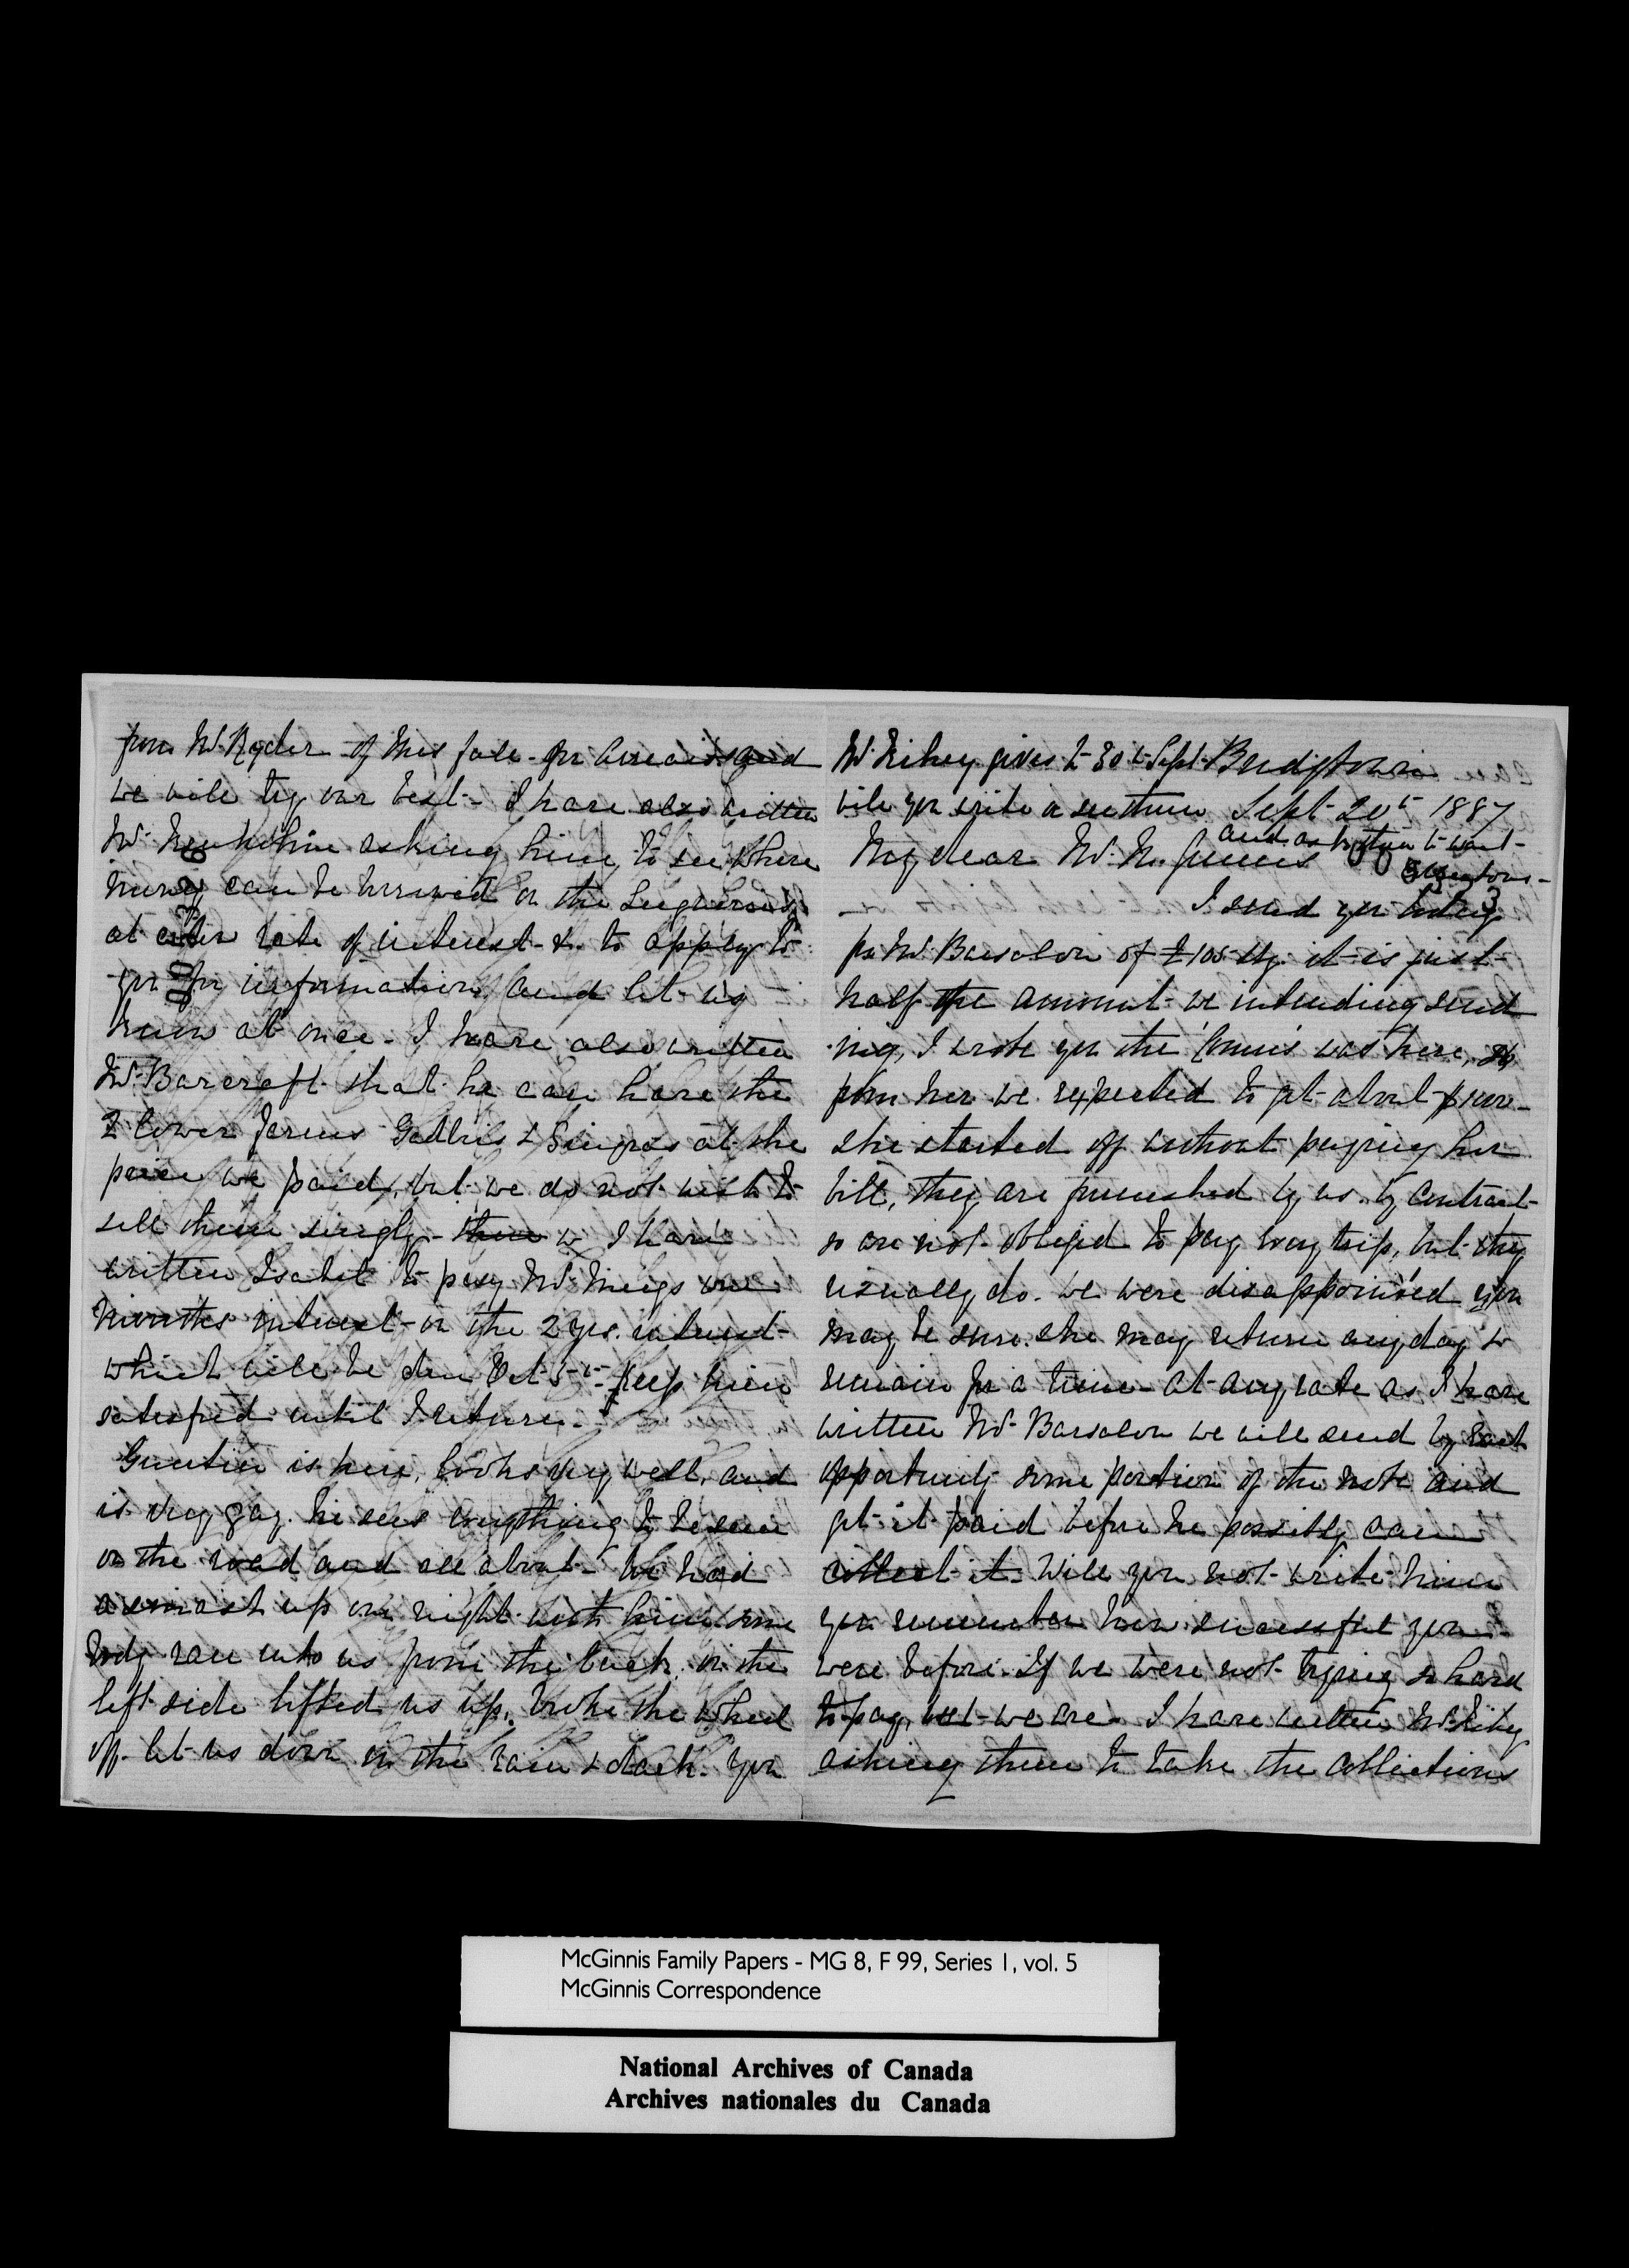 Mr. Riley gives to 30th Sept. Bridgtown
will you write a see them Sept 20th 1887
My dear Mr. McGinnis and ask them to wait
I send you today
pr Mr. Barsalou of £100 stg. it is just
half the amount we intending send
ing, I wrote you the was here, &
from her we expected to get about $1000-
she started off without paying her
bill, they are furnished by us by contract
so are not obliged to pay every trip, but they
usually do. We were disappointed you
may be sure. she may return any day to
remain for a time - at any rate as I have
written Mr. Barsalou we will send by each
opportunity some portion of the note and
get it paid before he possibly can
collect it. Will you not write him
you remember how successful you
were before. If we were not trying so hard
to pay, but we are. I have written Mr. Riley
asking them to take the collections
from Mr. Ryder of this fall for arrears and
we will try our best - I have also written
Mr. asking him to see where
money can be borrowed on the Seigneuries
at rate of interest & to apply to
you for information and let us
know at once. I have also written
Mr. Barcroft that he can have the
2 lower farms & at the
price we paid, but we do not wish to
sell them singly - I have
written Isabel to pay Mr. Meigs one
months interest on the 2 yrs. interest
which will be due Oct 5th - keep him
satisfied until I return.
is here, looks very well, and
is very gay. he sees everything to be seen
on the road and all about. We had
a smash up one night with him some
body ran into us from the back on the
left side lifted us up, broke the wheel
off let us down in the rain & dark. you
McGinnis Family Papers - MG 8, F 99, Series 1, vol. 5
McGinnis Correspondence
National Archives of Canada
Archives nationales du Canada